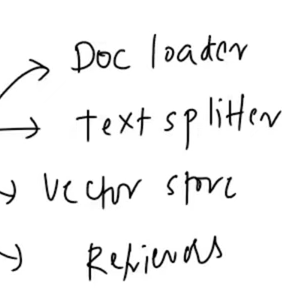 Doc loader
text splitter
Vector store
Retrievals